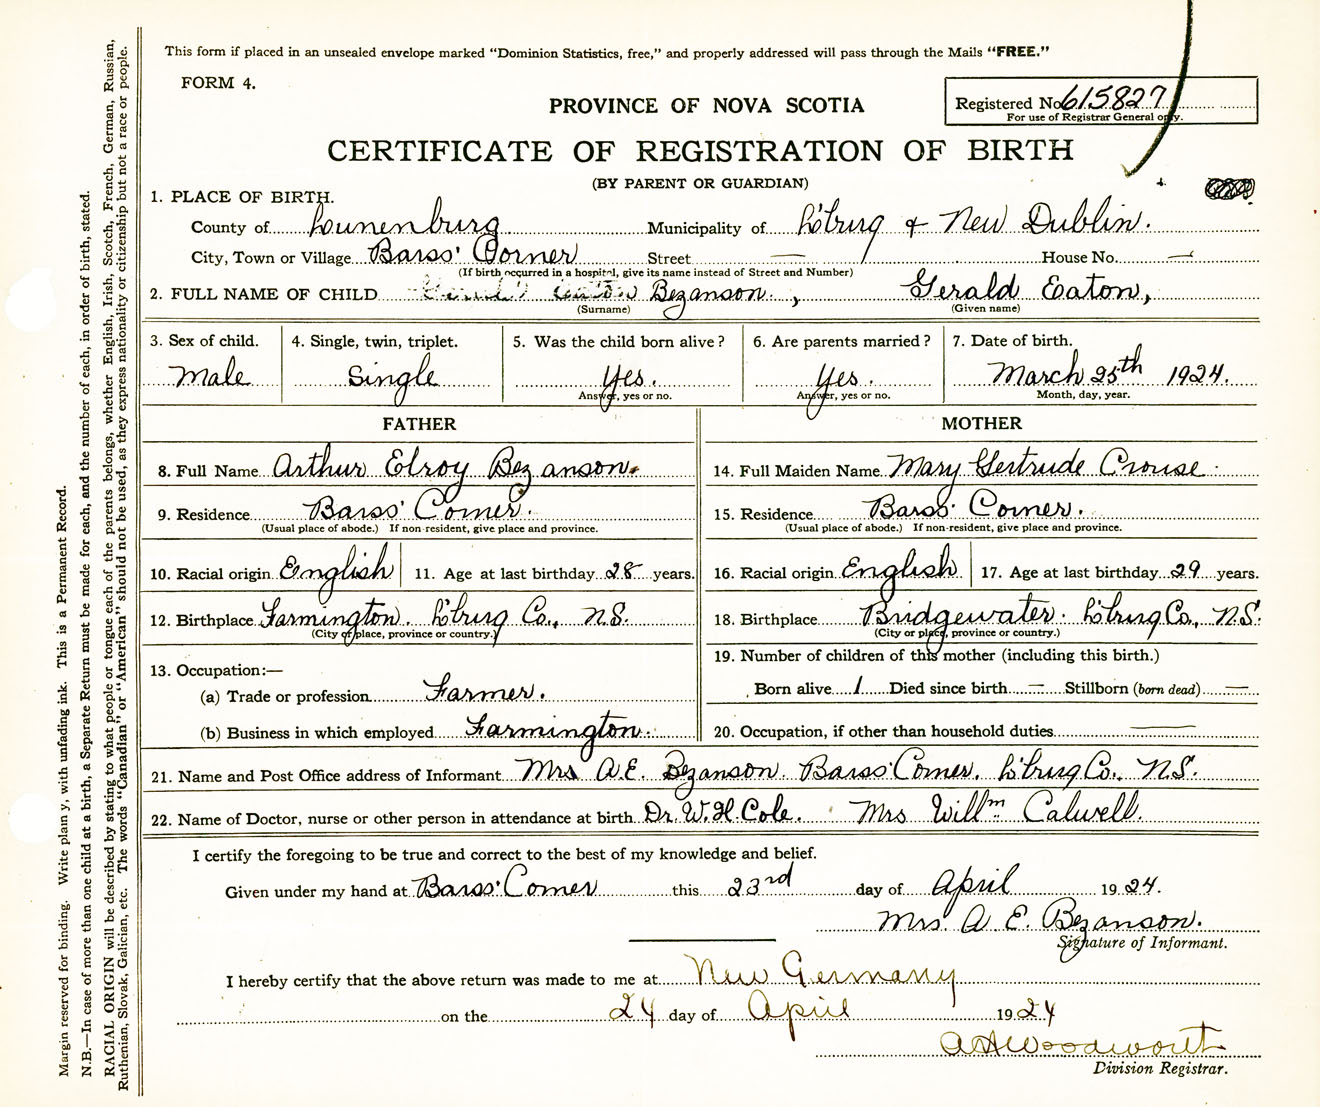 This form if placed in an unsealed envelope marked “Dominion Statistics, free,” and properly addressed will pass through the Mails “FREE.”
FORM 4.
PROVINCE OF NOVA SCOTIA
Registered No. 615827
For use of Registrar General only.
CERTIFICATE OF REGISTRATION OF BIRTH
(BY PARENT OR GUARDIAN)
1. PLACE OF BIRTH.
County of Lunenburg Municipality of L'burg & New Dublin.
City, Town or Village Barss' Corner Street — House No. —
(If birth occurred in a hospital, give its name instead of Street and Number)
2. FULL NAME OF CHILD Bezanson, Gerald Eaton,
(Surname) (Given name)
3. Sex of child. 4. Single, twin, triplet. 5. Was the child born alive? 6. Are parents married? 7. Date of birth.
Male Single Yes. Yes. March 25th 1924.
Answer, yes or no. Answer, yes or no. Month, day, year.
FATHER MOTHER
8. Full Name Arthur Elroy Bezanson. 14. Full Maiden Name Mary Gertrude Crouse
9. Residence Barss' Corner. 15. Residence Barss' Corner.
(Usual place of abode.) If non-resident, give place and province. (Usual place of abode.) If non-resident, give place and province.
10. Racial origin English 11. Age at last birthday 28 years. 16. Racial origin English 17. Age at last birthday 29 years.
12. Birthplace Farmington. L'burg Co., N.S. 18. Birthplace Bridgewater. L'burg Co., N.S.
(City or place, province or country.) (City or place, province or country.)
13. Occupation:— 19. Number of children of this mother (including this birth.)
(a) Trade or profession Farmer. Born alive 1 Died since birth — Stillborn (born dead) —
(b) Business in which employed Farmington. 20. Occupation, if other than household duties —
21. Name and Post Office address of Informant Mrs A.E. Bezanson. Barss' Corner. L'burg Co., N.S.
22. Name of Doctor, nurse or other person in attendance at birth Dr. W.H. Cole. Mrs Willm. Calwell.
I certify the foregoing to be true and correct to the best of my knowledge and belief.
Given under my hand at Barss' Corner this 23rd day of April 1924.
Mrs. A E. Bezanson.
Signature of Informant.
I hereby certify that the above return was made to me at New Germany
on the 24 day of April 1924
A H Woodworth
Division Registrar.
Margin reserved for binding. Write plainly, with unfading ink. This is a Permanent Record.
N.B.—In case of more than one child at a birth, a Separate Return must be made for each, and the number of each, in order of birth, stated.
RACIAL ORIGIN will be described by stating to what people or tongue each of the parents belongs, whether English, Irish, Scotch, French, German, Russian,
Ruthenian, Slovak, Galician, etc. The words “Canadian” or “American” should not be used, as they express nationality or citizenship but not a race or people.